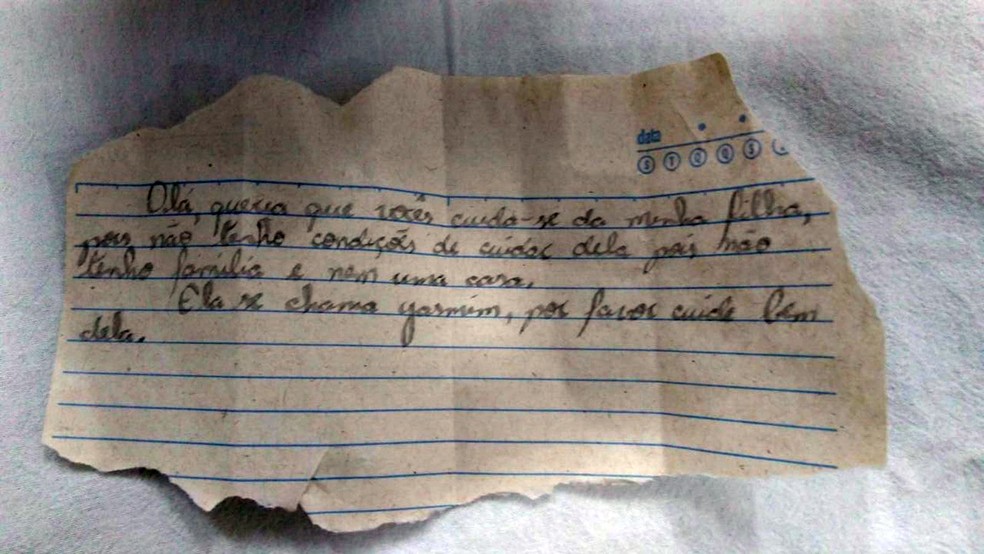 data
S T Q Q S
Olá, queria que vocês cuida-se da minha filha,
pois não tenho condições de cuidar dela pois não
tenho família e nem uma casa.
Ela se chama yasmim, por favor cuide bem
dela.